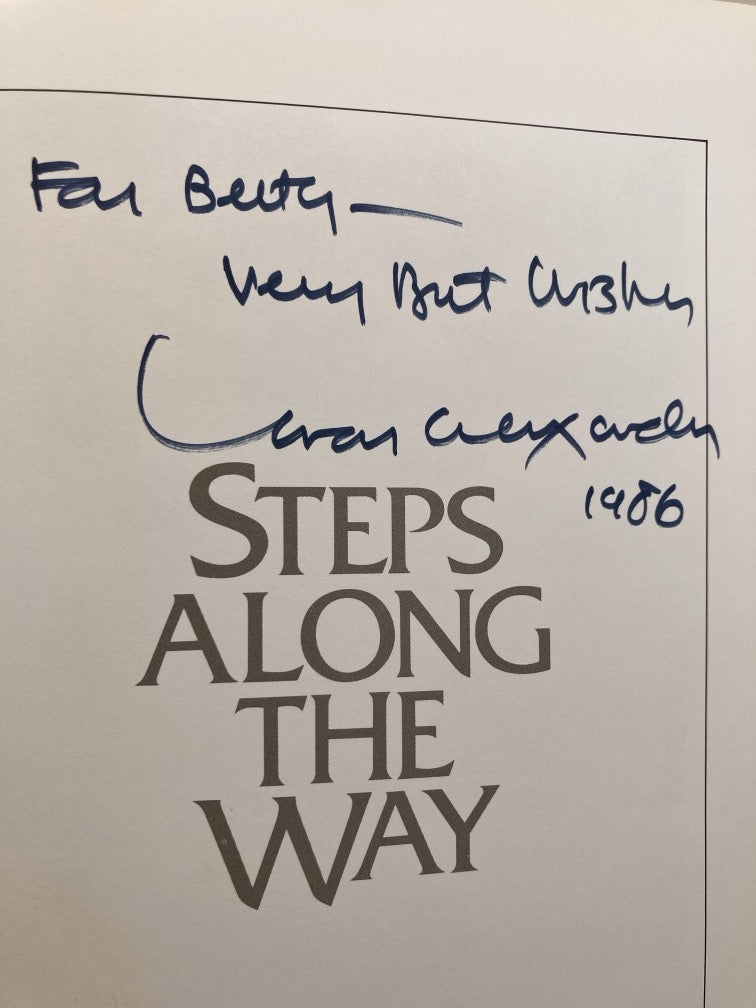 For Betty —
Very Best Wishes
Lamar Alexander
1986
STEPS
ALONG
THE
WAY